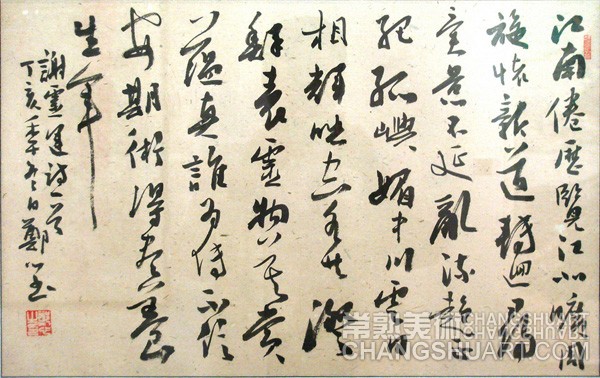 江南倦歷覽江北曠周
旋懷新道轉迥尋
異景不延亂流趨正
絕孤嶼媚中川雲日
相輝映空水共澄
鮮表靈物莫賞
蘊真誰為傳
安期術得盡養
生年
謝靈運詩一首
丁亥季冬日鄭
常熟美術
CHANGSHUART.COM